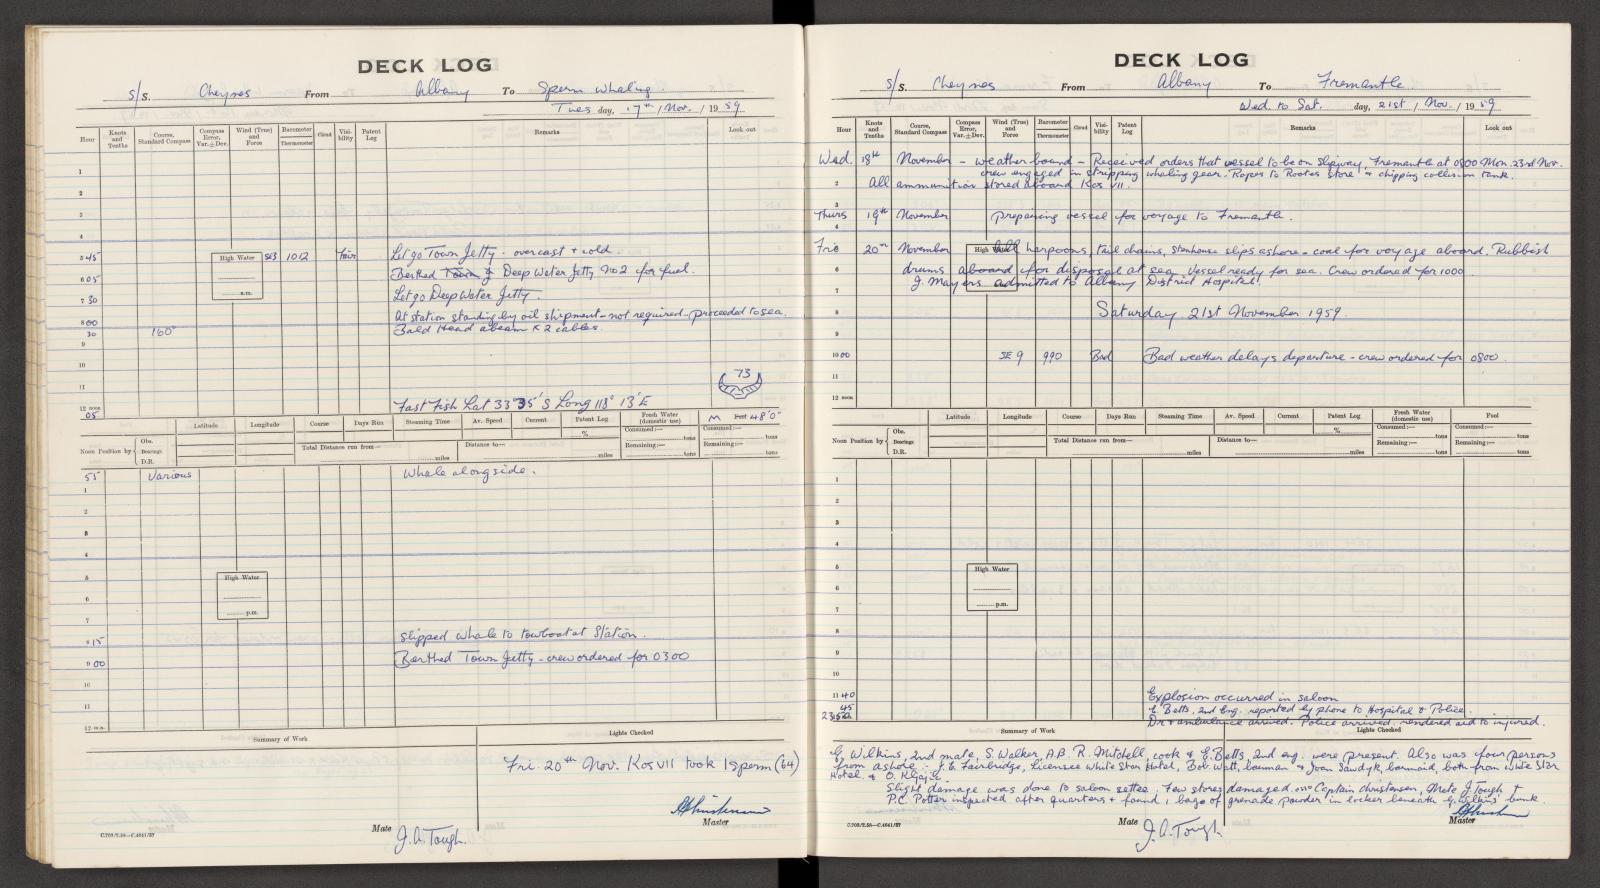 DECK LOG
S/S. Cheynes From Albany To Sperm Whaling.
Tues day, 17th / Nov. / 19 59
Hour Knots and Tenths Course, Standard Compass Compass Error, Var.±Dev. Wind (True) and Force Barometer Thermometer Cloud Visibility Patent Log Remarks Look out
1
2
3
4
5 45 High Water SE3 1012 Fair Let go Town Jetty - overcast + cold.
6 05 Berthed Town J Deep Water Jetty No 2 for fuel.
a.m.
7 30 Let go Deep Water Jetty.
8 00 At station standing by oil shipment - not required - proceeded to sea.
30 160° Bald Head abeam x 2 cables.
9
10
11
73
12 noon
05 Fast Fish Lat 33° 35' S Long 118° 13' E
M Feet 48'0"
Latitude Longitude Course Days Run Steaming Time Av. Speed Current Patent Log % Fresh Water (domestic use) Consumed:— tons Remaining:— tons Consumed:— tons Remaining:— tons
Noon Position by Obs. Bearings D.R. Total Distance run from— miles Distance to— miles
55 Various Whale alongside.
1
2
3
4
5
High Water
6
p.m.
7
8 15 Slipped whale to towboat at Station.
9 00 Berthed Town Jetty - crew ordered for 0300
10
11
12 m.n.
Summary of Work Lights Checked
Fri. 20th Nov. Kos VII took 1 sperm (64)
Mate J.A. Tough. Master
C.702/2.58—C.4641/57
DECK LOG
S/S. Cheynes From Albany To Fremantle.
Wed. to Sat. day, 21st / Nov. / 19 59
Hour Knots and Tenths Course, Standard Compass Compass Error, Var.±Dev. Wind (True) and Force Barometer Thermometer Cloud Visibility Patent Log Remarks Look out
Wed. 18th November - weather bound - Received orders that vessel to be on slipway, Fremantle at 0800 Mon. 23rd Nov.
1 crew engaged in stripping whaling gear. Ropes to Rootes store + chipping collision tank.
2 All ammunition stored aboard Kos VII.
3
Thurs 19th November preparing vessel for voyage to Fremantle.
4
Frid 20th November High Water All harpoons, tail chains, stenhouse slips ashore - coal for voyage aboard. Rubbish
6 drums aboard for disposal at sea. Vessel ready for sea. Crew ordered for 1000
7 J. Mayers admitted to Albany District Hospital.
8 Saturday 21st November 1959.
9
10 00 SE 9 990 Bad Bad weather delays departure - crew ordered for 0800
11
12 noon
Latitude Longitude Course Days Run Steaming Time Av. Speed Current Patent Log % Fresh Water (domestic use) Consumed:— tons Remaining:— tons Fuel Consumed:— tons Remaining:— tons
Noon Position by Obs. Bearings D.R. Total Distance run from— miles Distance to— miles
1
2
3
4
5
High Water
6
p.m.
7
8
9
10
11 40 Explosion occurred in saloon
45 E. Betts, 2nd Eng. reported by phone to Hospital & Police.
2352 Dr + ambulance arrived. Police arrived. rendered aid to injured.
Summary of Work Lights Checked
G. Wilkins, 2nd mate, S. Walker, A.B. R. Mitchell, cook & E. Betts, 2nd eng. were present. Also was four persons
from ashore - J.E. Fairbridge, Licensee White Star Hotel, Bob Watt, barman + Joan Sawdyk, barmaid, both from White Star
Hotel. & O.
Slight damage was done to saloon settee. Few stores damaged. Captain Christensen, Mate J. Tough +
P.C. Potter inspected after quarters + found 1 bag of grenade powder in locker beneath G. Wilkins' bunk.
Mate J.A. Tough Master
C.702/2.58—C.4641/57